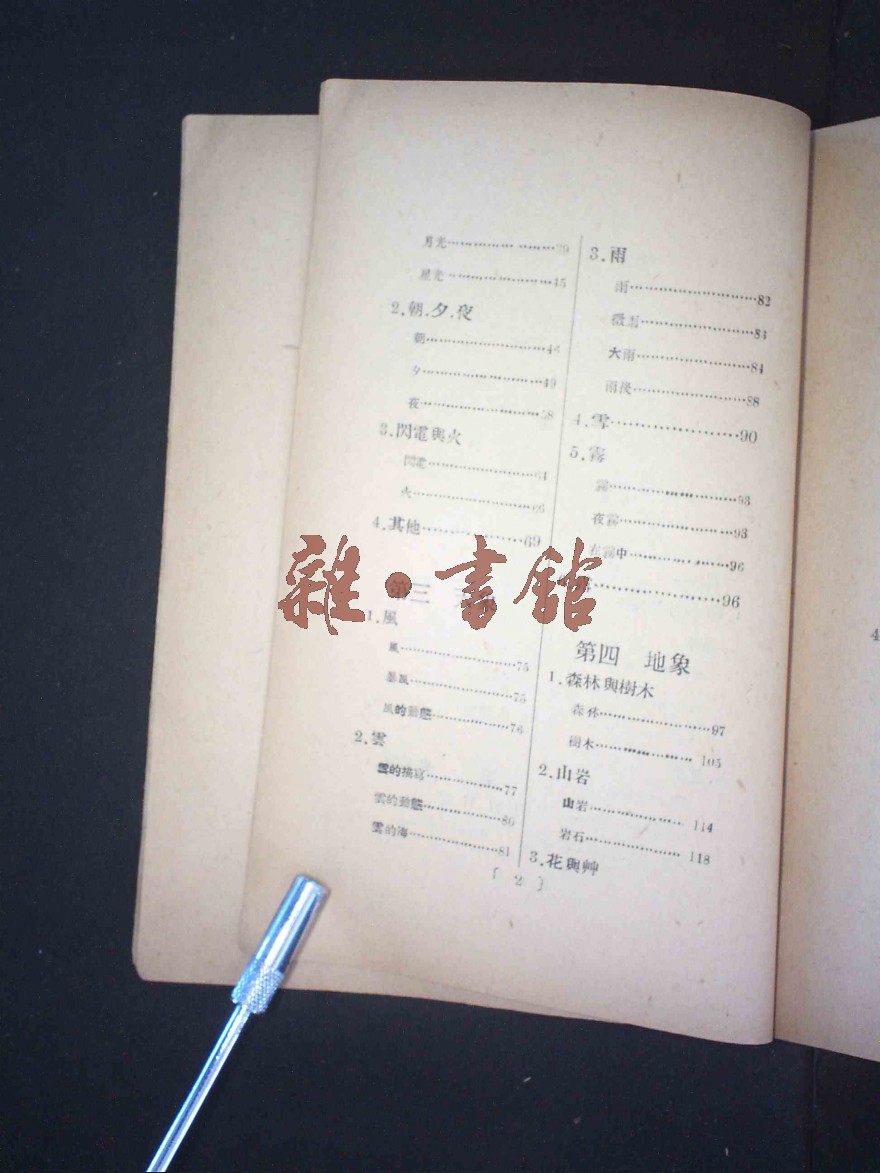 月光……………………39
星光……………………45
2.朝.夕.夜
朝……………………46
夕……………………49
夜……………………58
3.閃電與火
閃電……………………61
火……………………66
4.其他……………………69
第三　天象
1.風
風……………………75
暴風……………………75
風的動態……………………76
2.雲
雲的描寫……………………77
雲的動態……………………80
雲的海……………………81
3.雨
雨……………………82
微雨……………………83
大雨……………………84
雨後……………………88
4.雪……………………90
5.霧
霧……………………93
夜霧……………………93
在霧中……………………96
……………………96
第四　地象
1.森林與樹木
森林……………………97
樹木……………………105
2.山岩
山岩……………………114
岩石……………………118
3.花與艸
〔 2 〕
雜·書館